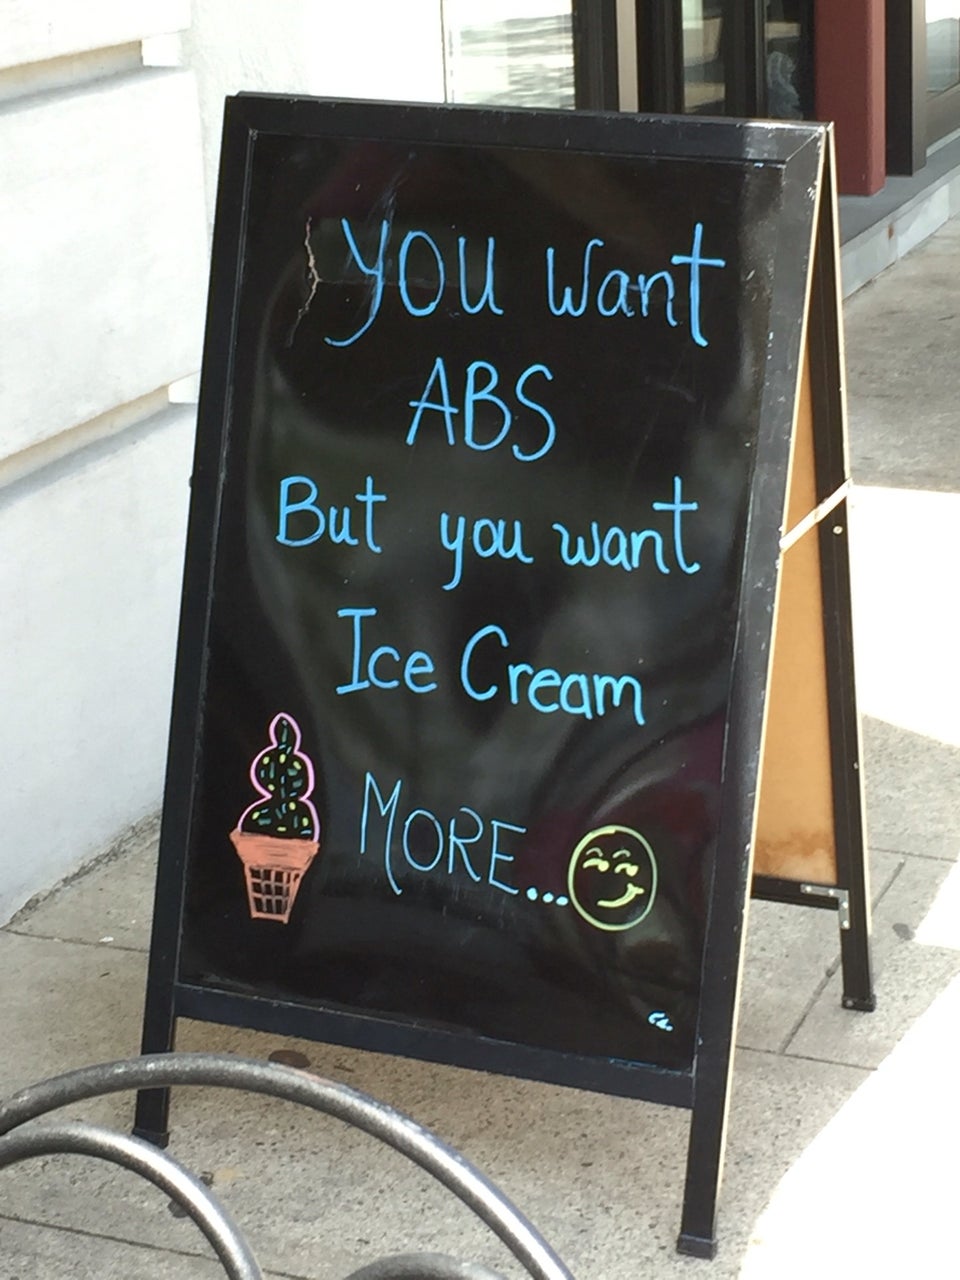 YOU Want
ABS
But you want
Ice Cream
MORE...